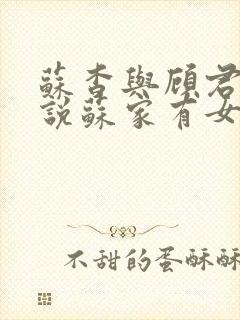 蘇杳與顧君
說蘇家有女
不甜的蛋酥酥